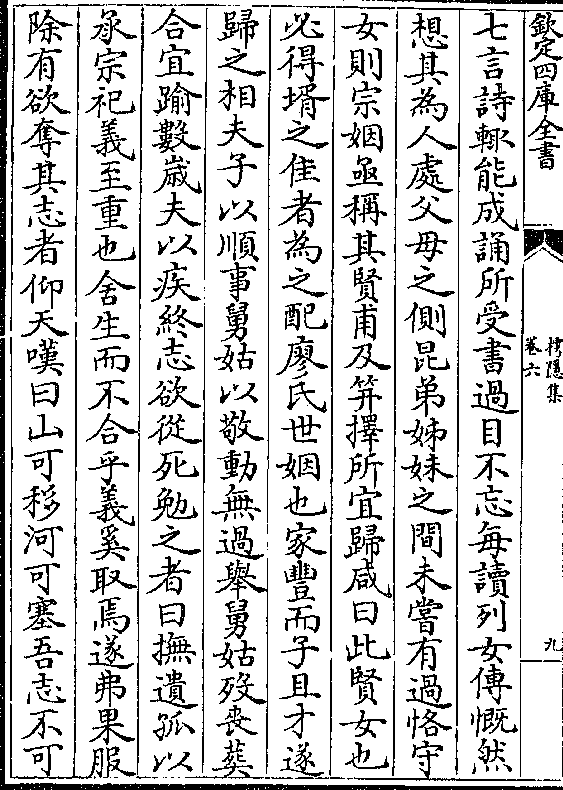 欽定四庫全書
樗隱集
卷六
九
七言詩輒能成誦所受書過目不忘每讀列女傳慨然
想其為人處父母之側昆弟姊妹之間未嘗有過恪守
女則宗姻亟稱其賢甫及笄擇所宜歸咸曰此賢女也
必得壻之佳者為之配廖氏世姻也家豐而子且才遂
歸之相夫子以順事舅姑以敬動無過舉舅姑歿喪葬
合宜踰數嵗夫以疾終志欲從死勉之者曰撫遺孤以
承宗祀義至重也舍生而不合乎義奚取焉遂弗果服
除有欲奪其志者仰天嘆曰山可移河可塞吾志不可